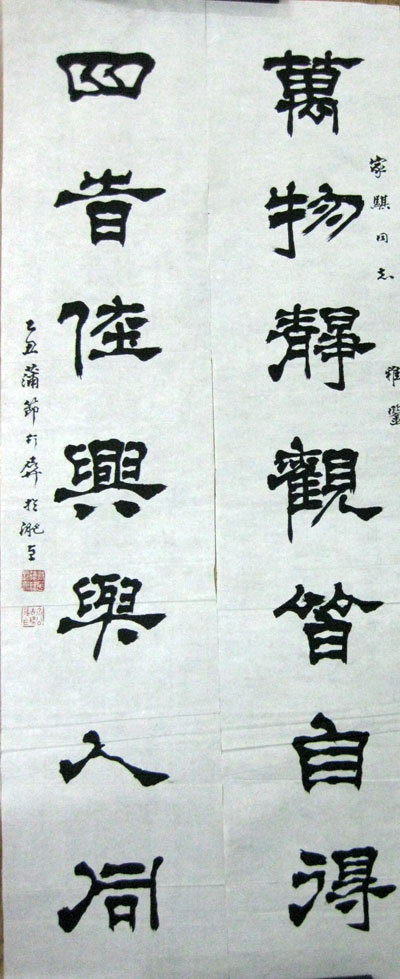 家騏同志
雅鑒
萬物靜觀皆自得
四旹佳興與人同
乙丑蒲節於淝上